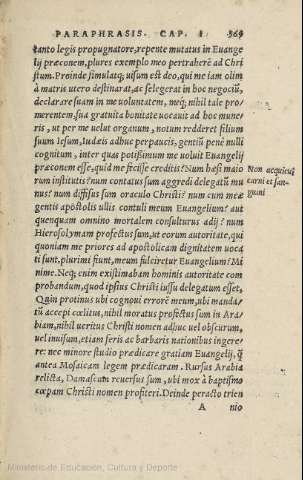 PARAPHRASIS. CAP. I. 369
tanto legis propugnatore, repente mutatus in Euange
lij præconem, plures exemplo meo pertraherē ad Chri
stum. Proinde simulatq; uisum est deo, qui me iam olim
à matris utero destinarat, ac selegerat in hoc negociū,
declarare suam in me uoluntatem, neq; nihil tale pro-
merentem, sua gratuita bonitate uocauit ad hoc mune-
ris, ut per me uelut organum, notum redderet filium
suum Iesum, Iudæis adhuc perpaucis, gentiū penè nulli
cognitum, inter quas potissimum me uoluit Euangelij
præconem esse, quid me fecisse creditis? Num hæsi maio
rum institutis? num contatus sum aggredi delegatū mu
nus? num diffisus sum oraculo Christi? num cum me æ
gentis apostolis ullis contuli meum Euangelium? aut
quenquam omnino mortalem consulturus adij? num
Hierosolymam profectus sum, ut eorum autoritate, qui
quoniam me priores ad apostolicam dignitatem uoca
ti sunt, plurimi fiunt, meum fulciretur Euangelium? Mi
nime. Neq; enim existimabam hominis autoritate com
probandum, quod ipsius Christi iussu delegatum esset.
Quin protinus ubi cognoui errorē meum, ubi manda-
tū accepi cœlitus, nihil moratus profectus sum in Ara-
biam, nihil ueritus Christi nomen adhuc uel obscurum,
uel inuisum, etiam feris ac barbaris nationibus ingere-
re: nec minore studio prædicare gratiam Euangelij, q̃
antea Mosaicam legem prædicaram. Rursus Arabia
relicta, Damascum reuersus sum, ubi mox à baptismo
cœpam Christi nomen profiteri. Deinde peracto trien
A nio
Non acquieui
carni et san-
guini
Ministerio de Educación, Cultura y Deporte